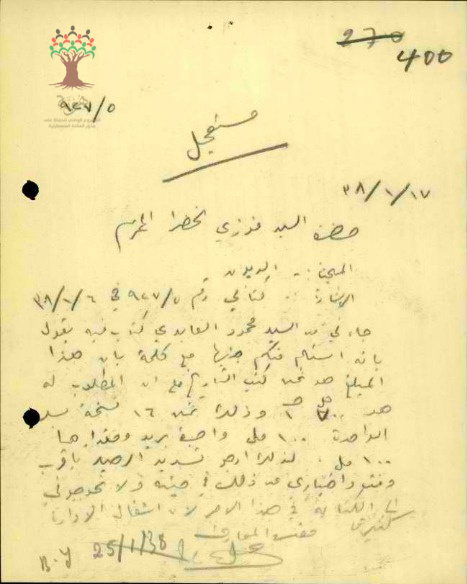 270
400
٩٢٧/٥
مستعجل
٣٨/١/١٧
حضرة السيد فوزي الخضرا المحترم
المبحث :- الديون
الإشارة :- كتابي رقم ٩٢٧/٥ في ٣٨/١/٦
جاءني من السيد محمود العابدي كتاب فيه يقول
بانه استلم منكم جنيها مع كلمة بان هذا
المبلغ هو ثمن كتب التاريخ مع ان المطلوب له
هو ٧٠٠ ١ وذلك ثمن ١٦ نسخة سعر
الواحدة ١٠٠ مل واجرة بريد ومقدارها
١٠٠ مل . لذلك ارجو تسديد الرصيد باقرب
وقت واخباري عن ذلك في حينه ولا تحوجوني
الى الكتابة في هذا الامر لان اشغال الادارة
كثيرة
مفتش المعارف
25/1/38